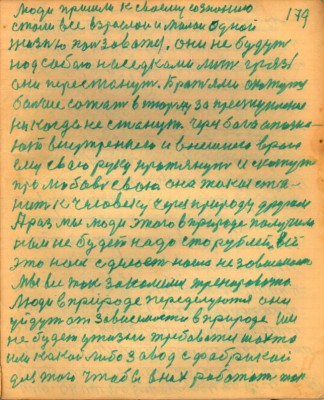 179
Люди пришли к своему сознанию
стали все взрослой и малой одной
жизнью пользоваться, они не будут
под собою наседками мять грязь
они перестанут. Братьями
больше сажать в тюрьму за преступление
никогда не станут. Через бога опозна-
ют внутреннего и внешнего врага
ему свою руку протянут и скажут
про любовь свою она такая
к человеку через природу другая
А раз мы люди этого в природе получили
нам не будет надо сто рублей, всё
это нам сделает наша независимость
Мы все так закалены тренировкой
Люди в природе переделаются они
уйдут от зависимости в природе им
не будет угля требоваться шахта
или какой либо завод с фабрикой
для того чтобы в них работать так